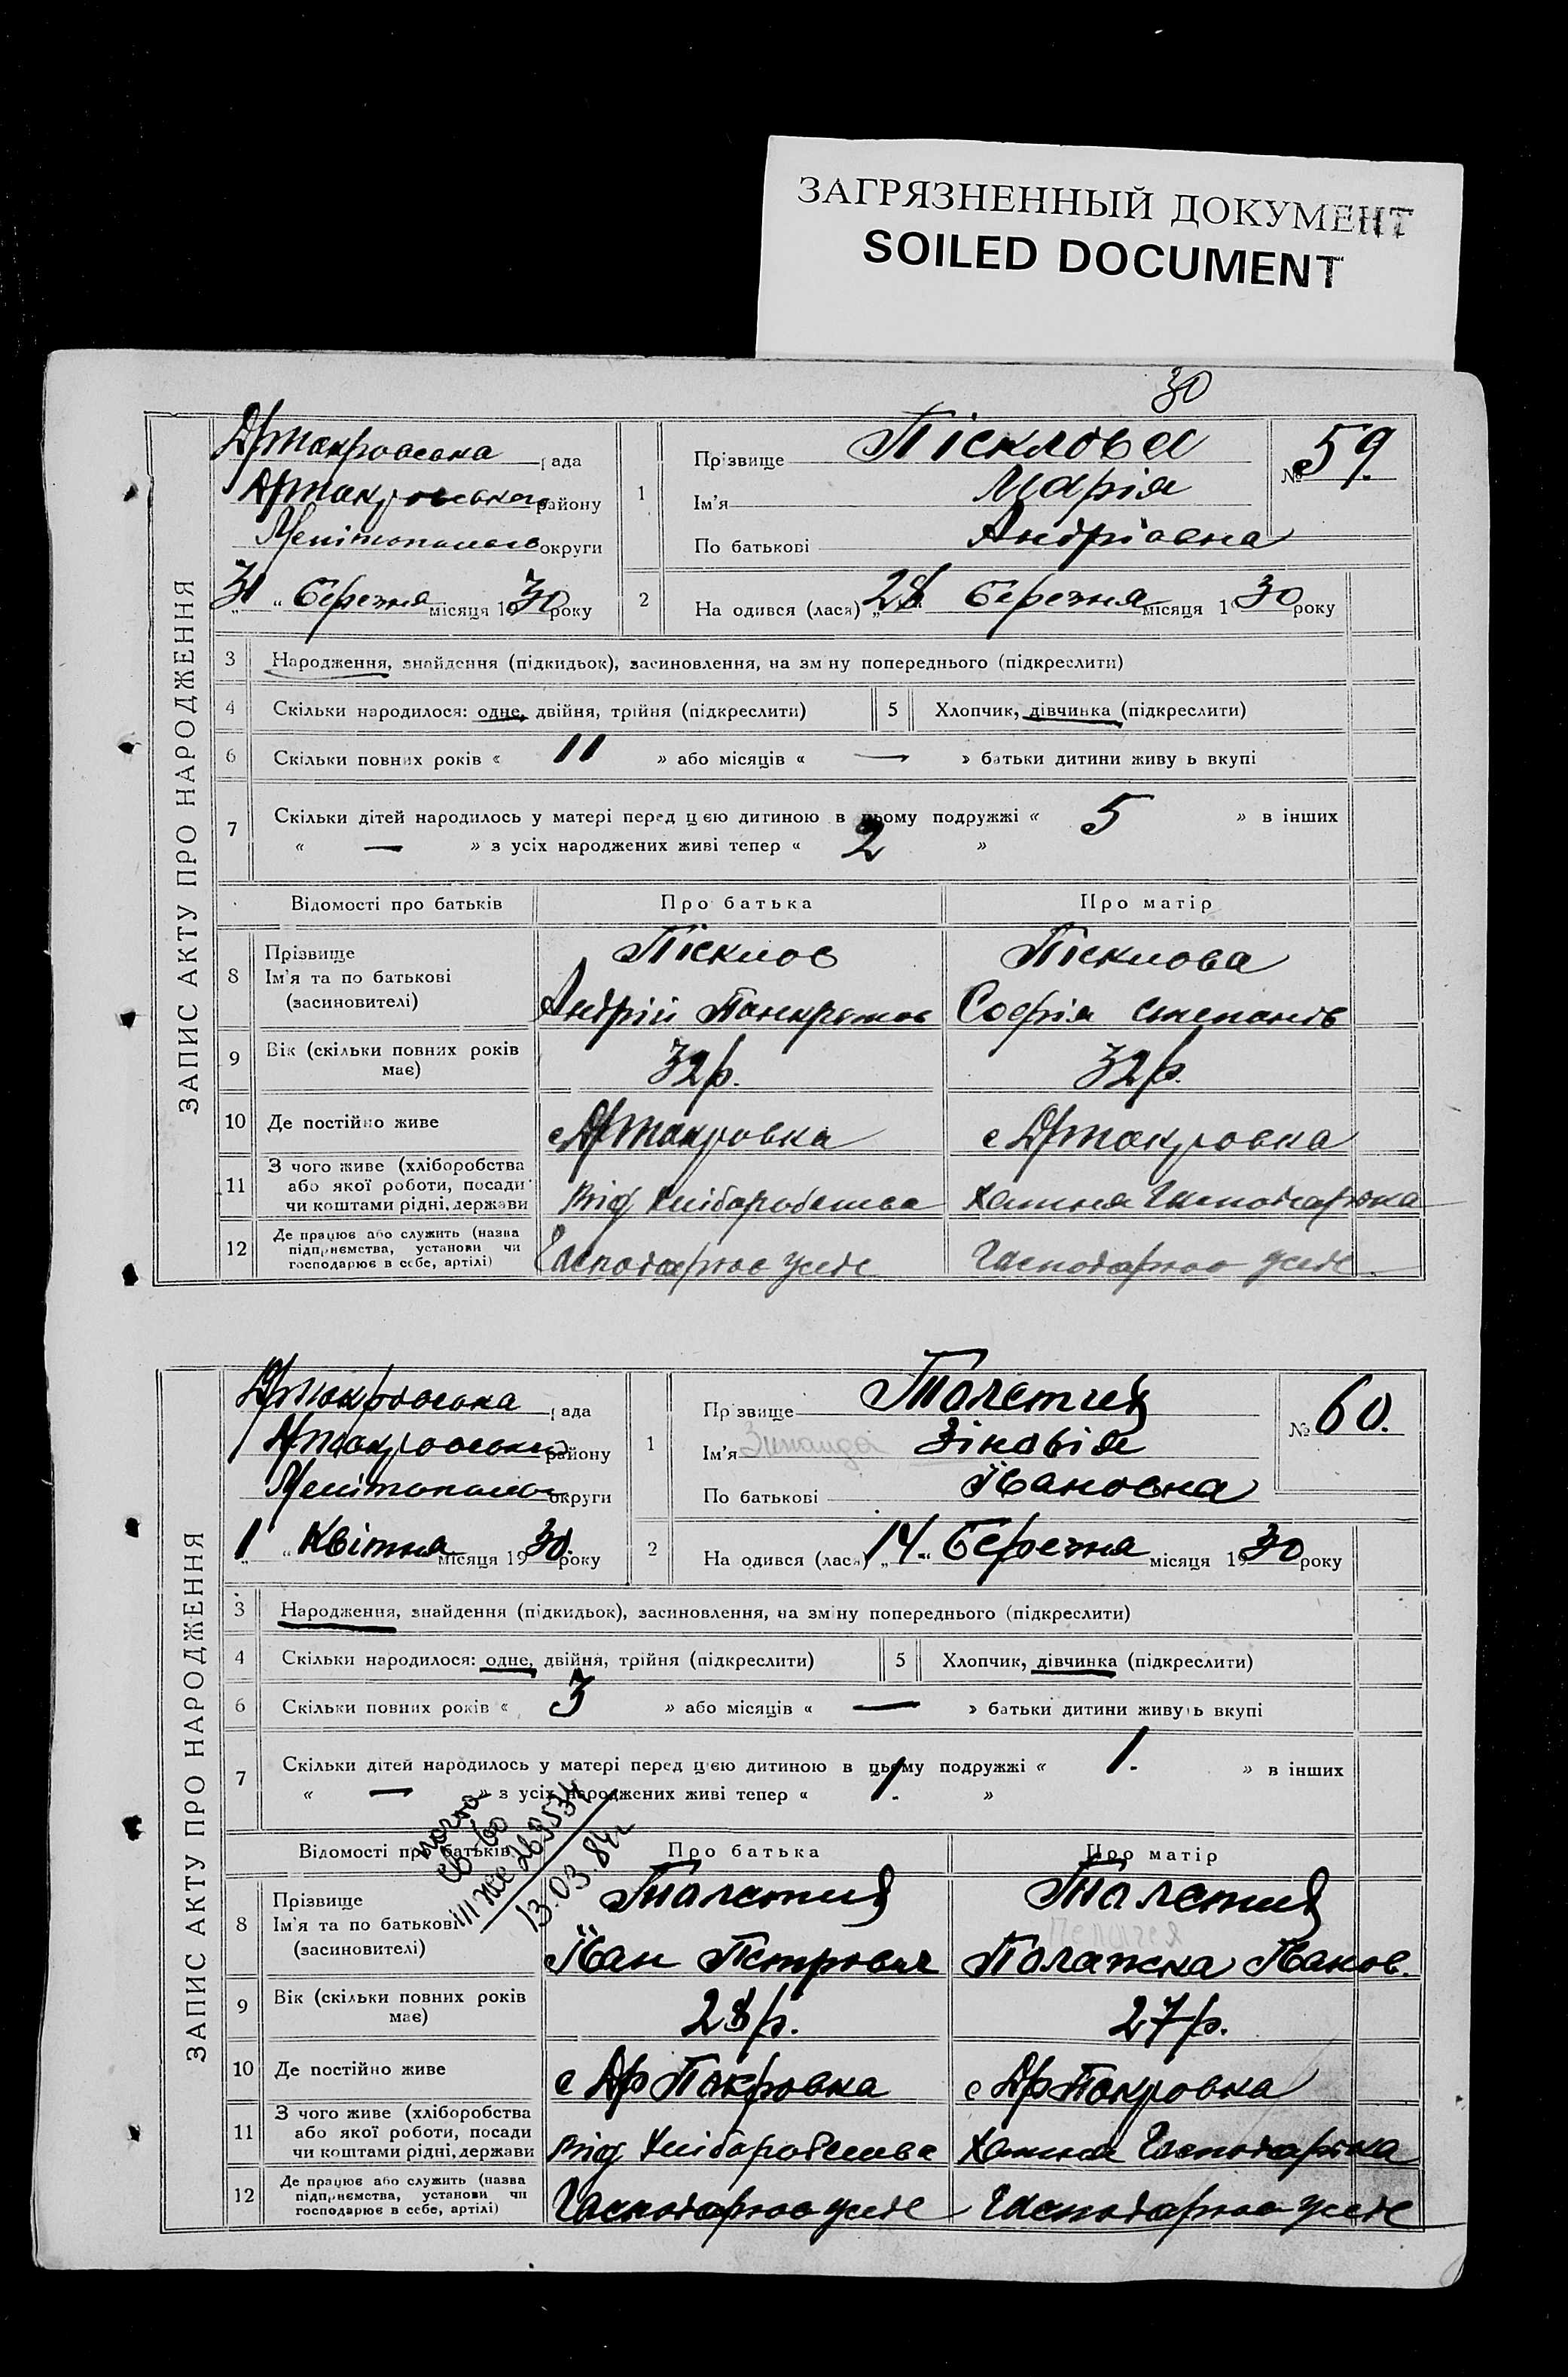 ЗАГРЯЗНЕННЫЙ ДОКУМЕНТ
SOILED DOCUMENT
30
ЗАПИС АКТУ ПРО НАРОДЖЕННЯ
рада
району
округи
31 „ “ Березня місяця 1930 року
1
Прізвище Пісклова
Ім'я Марія
По батькові Андріовна
№ 59.
2
На одився (лася) „28“ Березня місяця 1930 року
3 Народження, знайдення (підкидьок), засиновлення, на зміну попереднього (підкреслити)
4 Скільки народилося: одне, двійня, трійня (підкреслити) 5 Хлопчик, дівчинка (підкреслити)
6 Скільки повних років « 11 » або місяців « — » батьки дитини живу ь вкупі
7 Скільки дітей народилось у матері перед цією дитиною в цьому подружжі « 5 » в інших
« — » з усіх народжених живі тепер « 2 »
Відомості про батьків Про батька Про матір
8 Прізвище Пісклов Пісклова
Ім'я та по батькові (засиновителі) Андрій Панкратов Софія Степанів
9 Вік (скільки повних років має) 32 р. 32 р.
10 Де постійно живе с Др Покровка с Др Покровка
11 З чого живе (хліборобства або якої роботи, посади чи коштами рідні, держави Від Хліборобства Хатня Господарка
12 Де працює або служить (назва підприємства, установи чи господарює в себе, артілі) Господарює у себе Господарює у себе
ЗАПИС АКТУ ПРО НАРОДЖЕННЯ
рада
району
округи
„1“ Квітня місяця 1930 року
1
Пр звище Толстий
Ім'я Зинаида Зіновія
По батькові Івановна
№ 60.
2
На одився (лася) „14“ Березня місяця 1930 року
3 Народження, знайдення (підкидьок), засиновлення, на зміну попереднього (підкреслити)
4 Скільки народилося: одне, двійня, трійня (підкреслити) 5 Хлопчик, дівчинка (підкреслити)
6 Скільки повних років « 3 » або місяців « — » батьки дитини живуть вкупі
7 Скільки дітей народилось у матері перед цією дитиною в цьому подружжі « 1. » в інших
« — » з усіх народжених живі тепер « 1. »
13.03.84г
Відомості про батьків Про батька Про матір
8 Прізвище Толстий Толстий
Пелагея
Ім'я та по батькові (засиновителі) Іван Петрович Полажка Іванов.
9 Вік (скільки повних років має) 28 р. 27 р.
10 Де постійно живе с Др Покровка с Др Покровка
11 З чого живе (хліборобства або якої роботи, посади чи коштами рідні, держави Від Хліборобства Хатня Господарка
12 Де працює або служить (назва підприємства, установи чи господарює в себе, артілі) Господарює у себе Господарює у себе